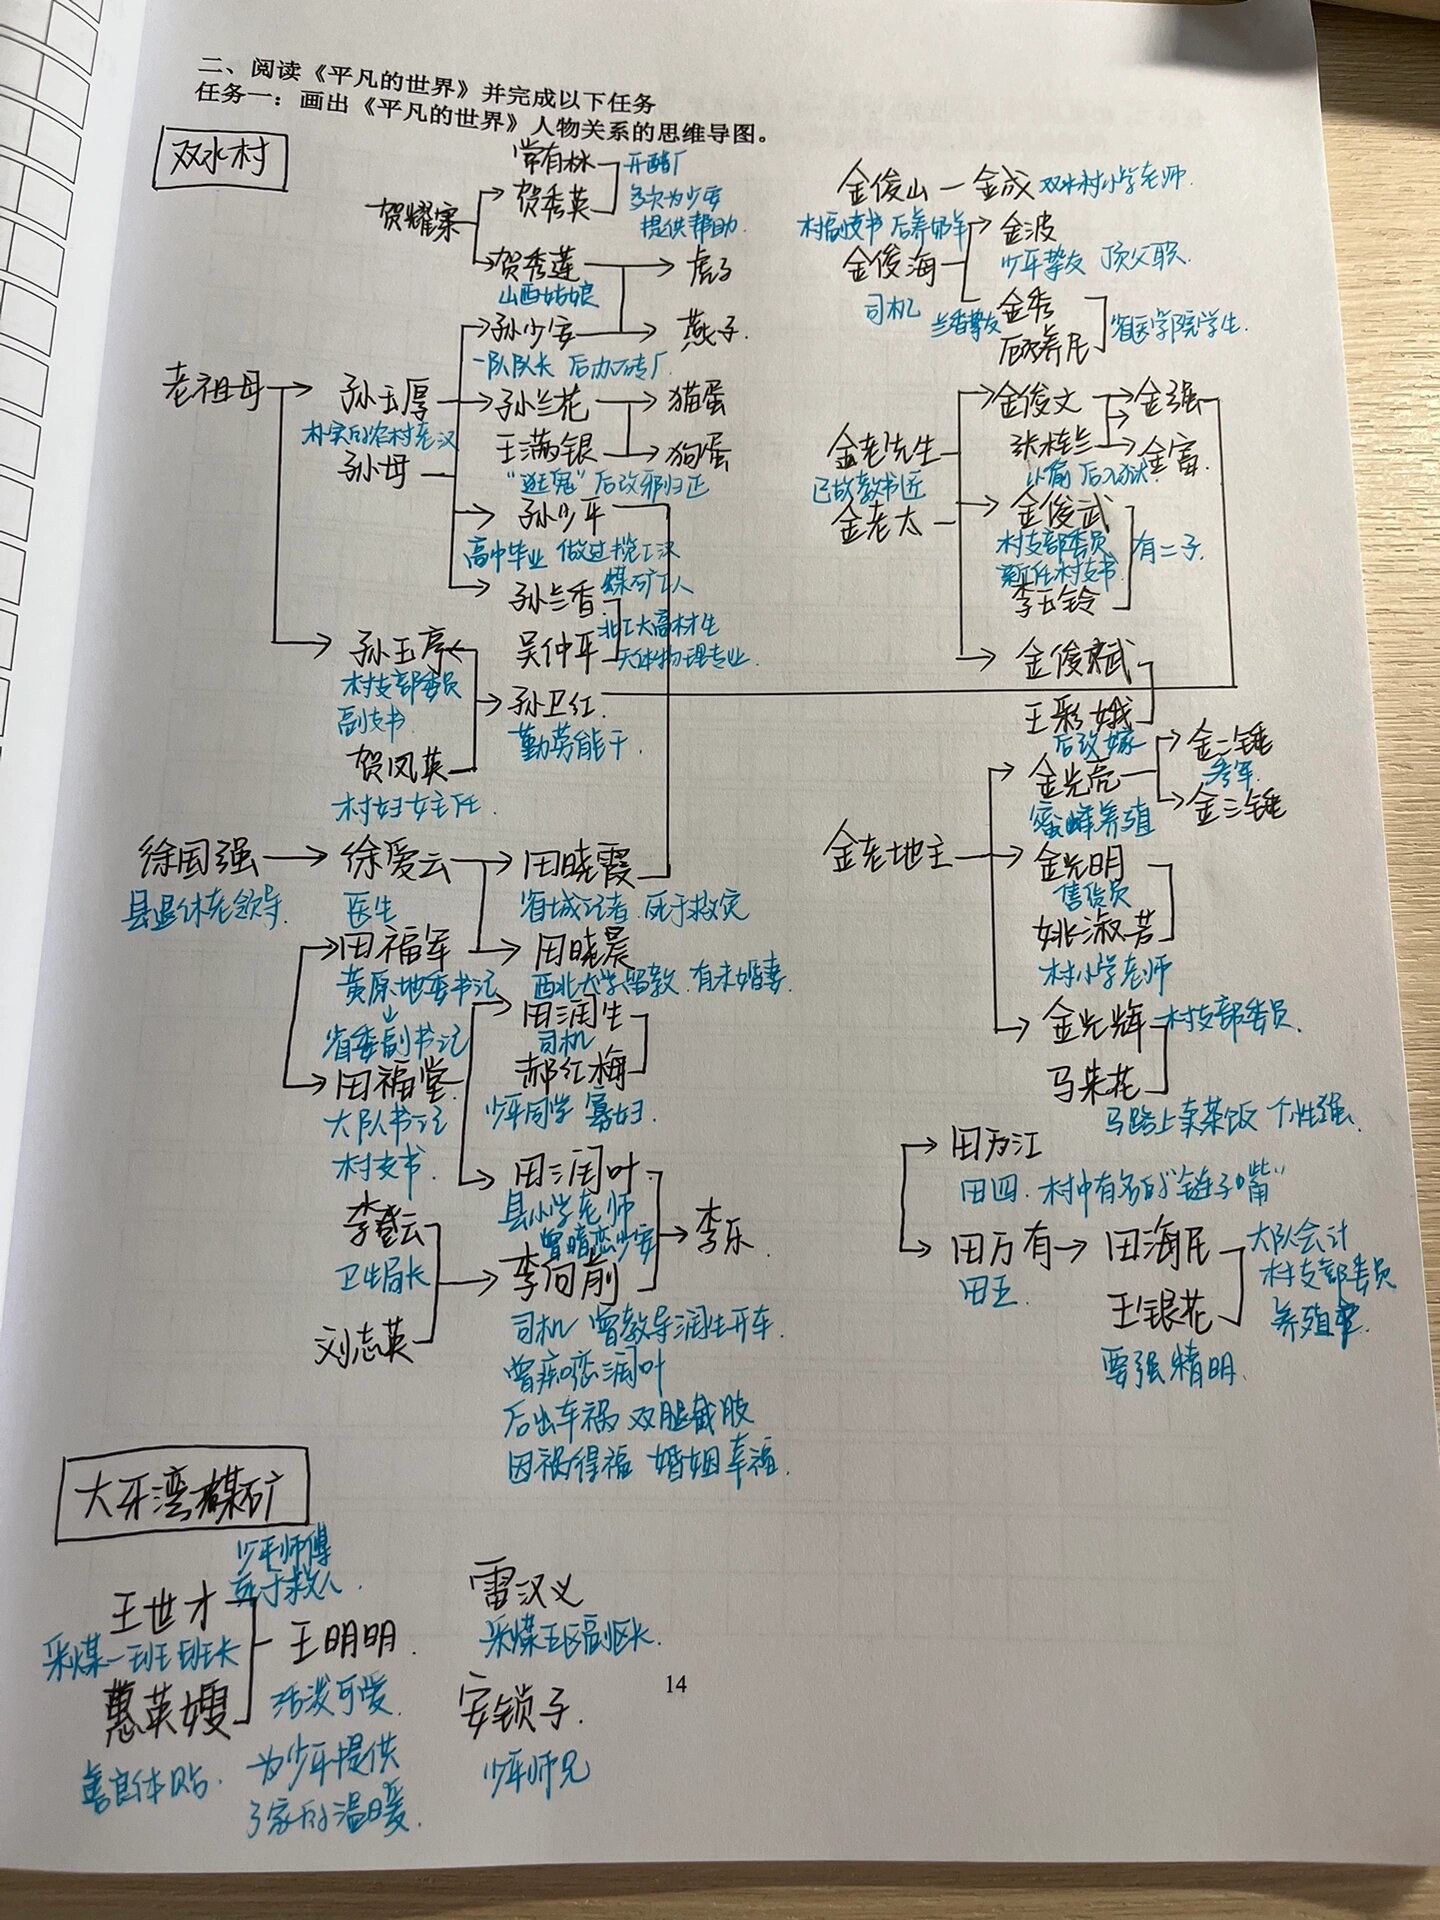 二、阅读《平凡的世界》并完成以下任务
任务一：画出《平凡的世界》人物关系的思维导图。
双水村
常有林 开醋厂
贺耀宗 贺秀英 多次为少安
提供帮助.
贺秀莲 虎子
山西姑娘
孙少安 燕子.
一队队长 后办砖厂
老祖母 孙玉厚 孙兰花 猫蛋
朴实的农村老汉
孙母 王满银 狗蛋
“逛鬼” 后改邪归正
孙少平
高中毕业 做过揽工汉
煤矿工人
孙兰香
北工大高材生
吴仲平 天体物理专业.
孙玉亭
村支部委员
副支书
孙卫红.
勤劳能干.
贺凤英
村妇女主任.
徐国强 徐爱云 田晓霞
县退休老领导. 医生 省城记者 死于救灾
田福军 田晓晨
黄原地委书记 西北大学留教 有未婚妻
省委副书记
田润生
司机
田福堂 郝红梅
大队书记 少年同学 寡妇.
村支书.
田润叶
县小学老师
曾暗恋少安
李登云 李向前 李乐.
卫生局长
刘志英
司机 曾教导润生开车.
曾痴恋润叶
后出车祸 双腿截肢
因祸得福 婚姻幸福.
金俊山 金成 双水村小学老师.
村副支书 后养奶羊 金波
金俊海 少年挚友 顶父职.
司机 兰香挚友 金秀
省医学院学生.
金俊文 金强
金老先生 张桂兰 金富.
已故教书匠
金老太 金俊武
村支部委员 有二子.
新任村支书.
李玉铃
金俊斌
王彩娥
后改嫁
金光亮 金二锤
参军.
蜜蜂养殖 金三锤
金老地主 金光明
售货员
姚淑芳
村小学老师
金光辉 村支部委员.
马来花
马路上卖茶饭 个性强.
田万江
田四. 村中有名的“链子嘴”
田万有 田海民 大队会计
田五. 村支部委员
王银花 养殖
要强精明.
大牙湾煤矿
少平师傅
死于救人.
王世才
采煤一班班长 王明明.
惠英嫂 活泼可爱.
善良体贴. 为少平提供
了家的温暖.
雷汉义
采煤五区副区长.
安锁子.
少平师兄
14